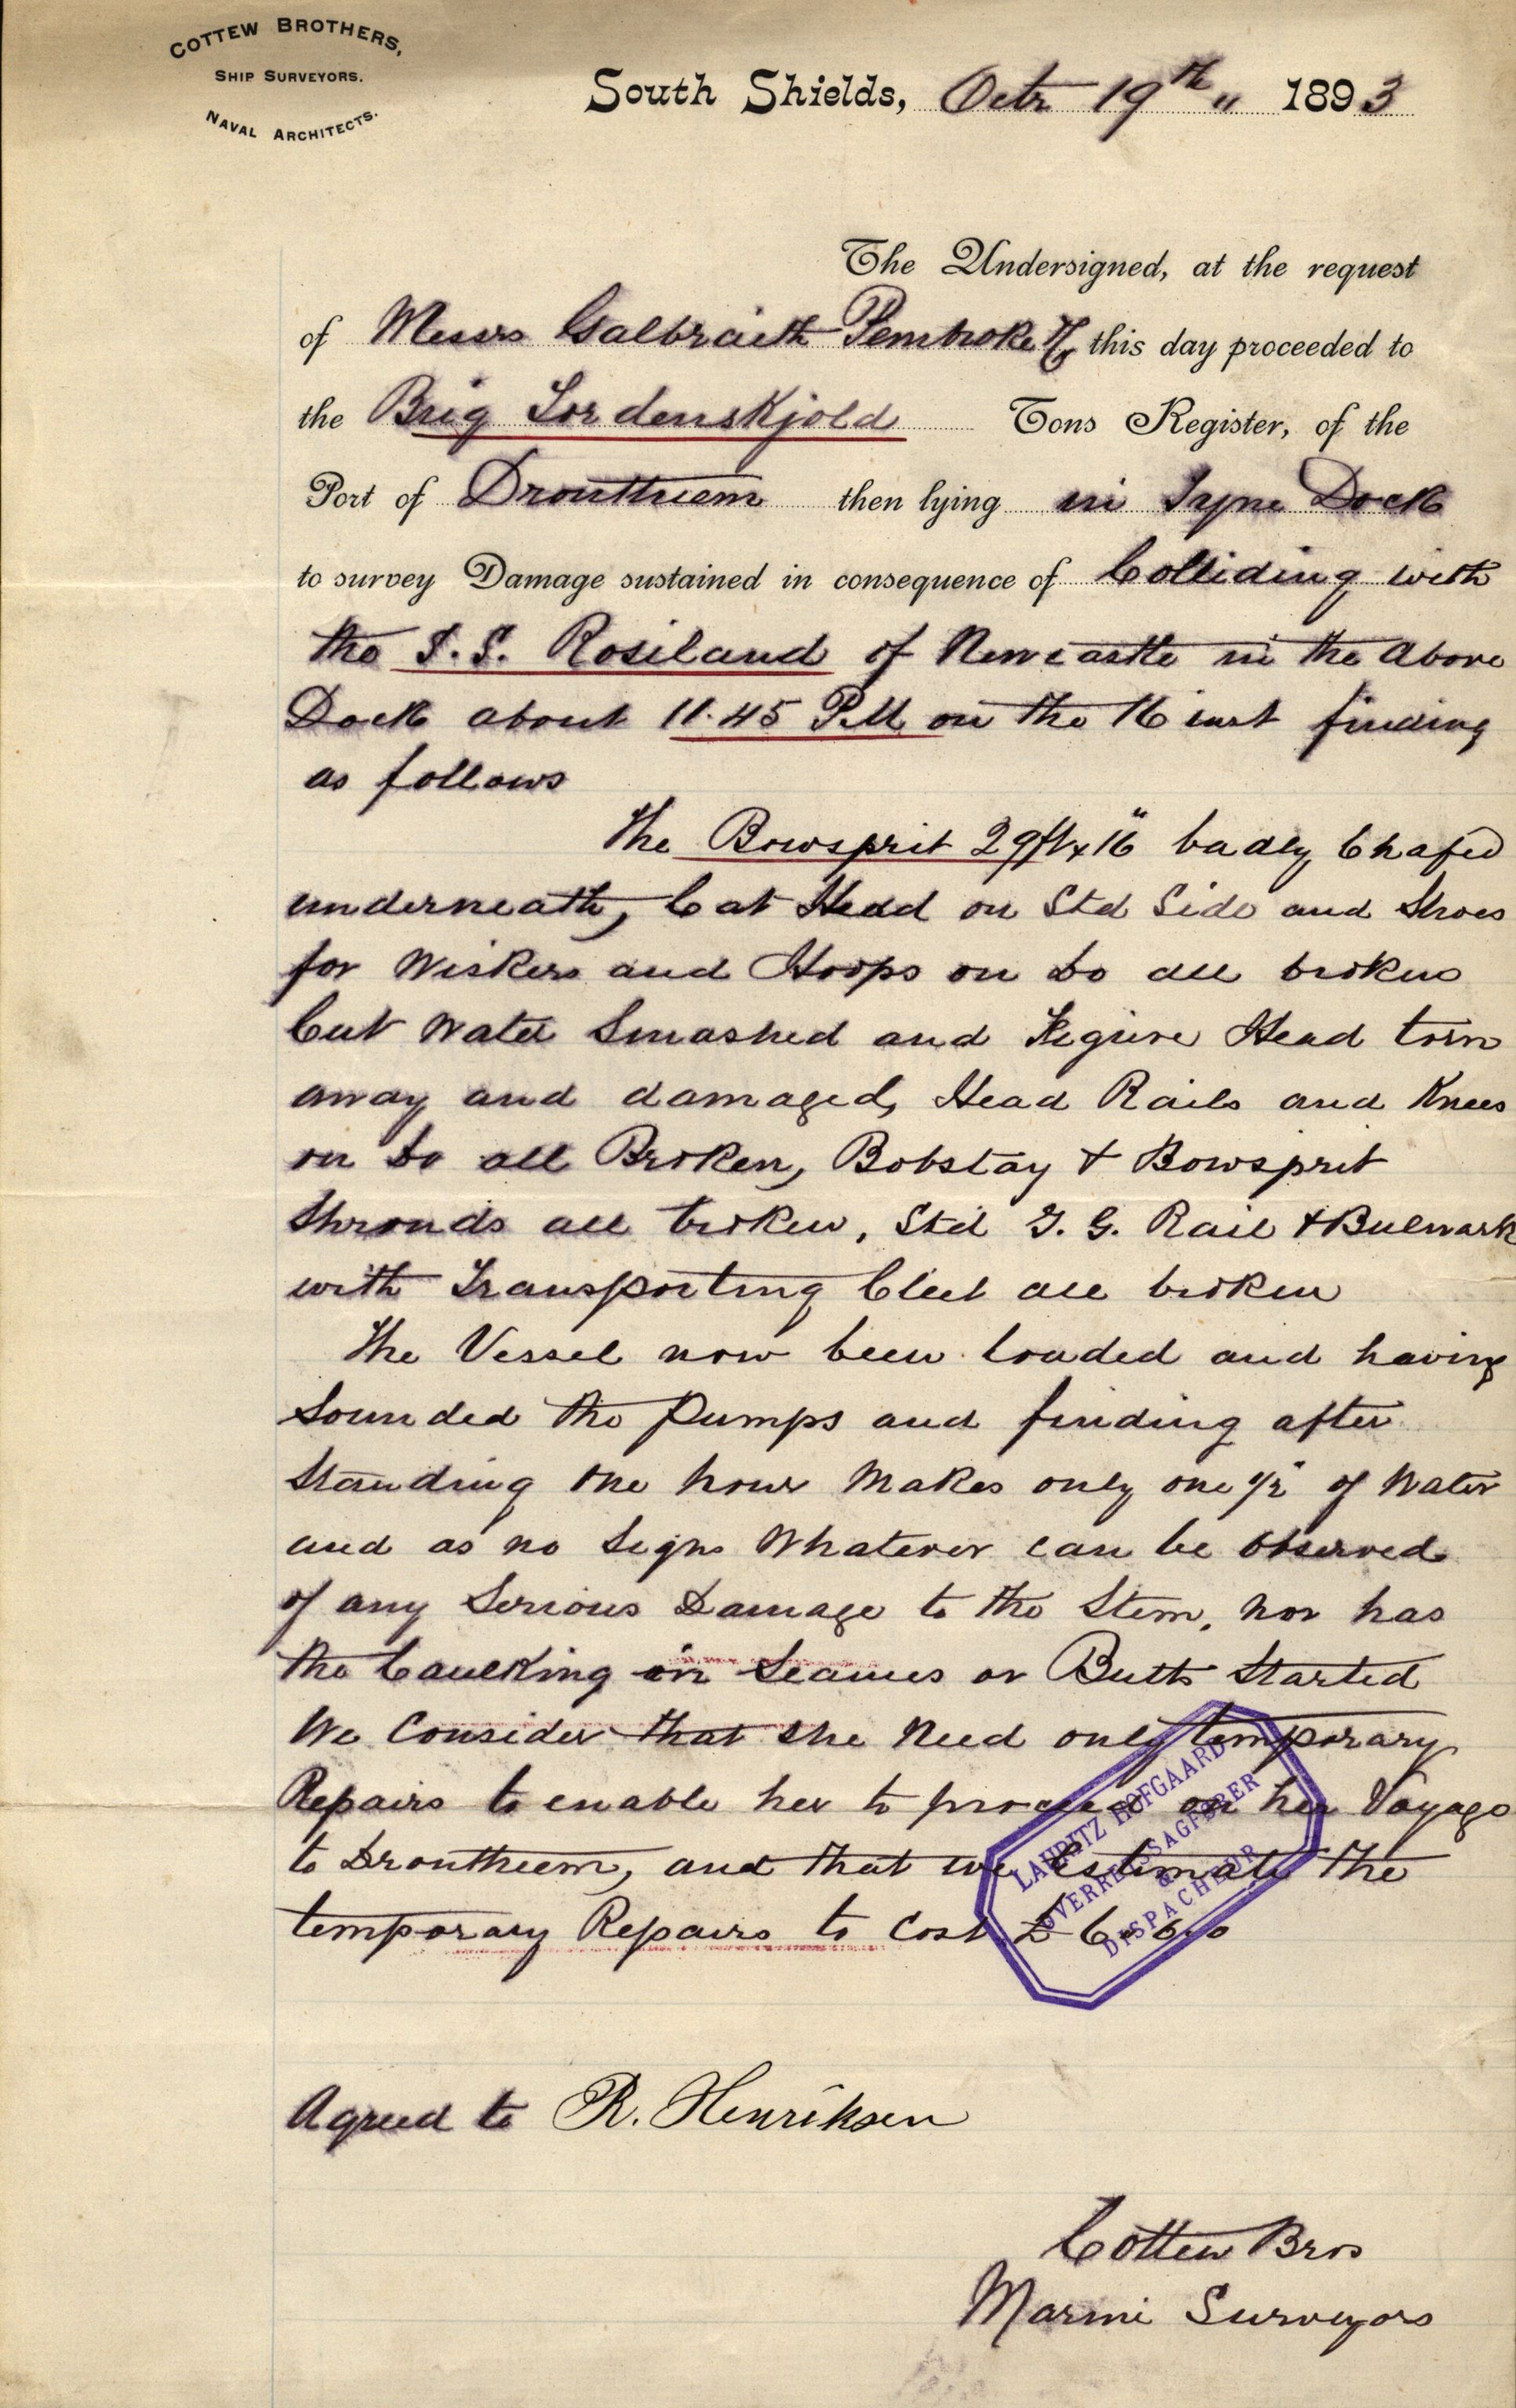 COTTEW BROTHERS,
SHIP SURVEYORS.
NAVAL ARCHITECTS.
South Shields, Octr 19th " 1893
The Undersigned, at the request
of Messrs Galbraith Pembroke & Co this day proceeded to
the Brig Tordenskjold Tons Register, of the
Port of Drontheem then lying in Tyne Dock
to survey Damage sustained in consequence of Colliding with
the S.S. Rosiland of Newcastle in the above
Dock about 11.45 P.M on the 16 inst finding
as follows
The Bowsprit 29ft x 16" badly Chafed
underneath, Cat Head on Std Side and Shoes
for Wiskers and Hoops on Do all broken
Cut Water Smashed and Figure Head torn
away and damaged, Head Rails and Knees
on Do all Broken, Bobstay + Bowsprit
Shrouds all broken, Std T. G. Rail + Bulwark
with Transporting Cleet all broken
The Vessel now been loaded and having
Sounded the Pumps and finding after
Standing one hour Makes only one 1/2" of Water
and as no Signs Whatever can be Observed
of any Serious Damage to the Stem, nor has
the Caulking in Seames or Butts Started
We Consider that she Need only temporary
Repairs to enable her to proceed on her Voyage
to Drontheem, and that we Estimate the
temporary Repairs to Cost £ 6.6.0
LAURITZ HOFGAARD
OVERRETSSAGFØRER
&
DISPACHEUR
Agreed to R. Henriksen
Cottew Bros
Marine Surveyors